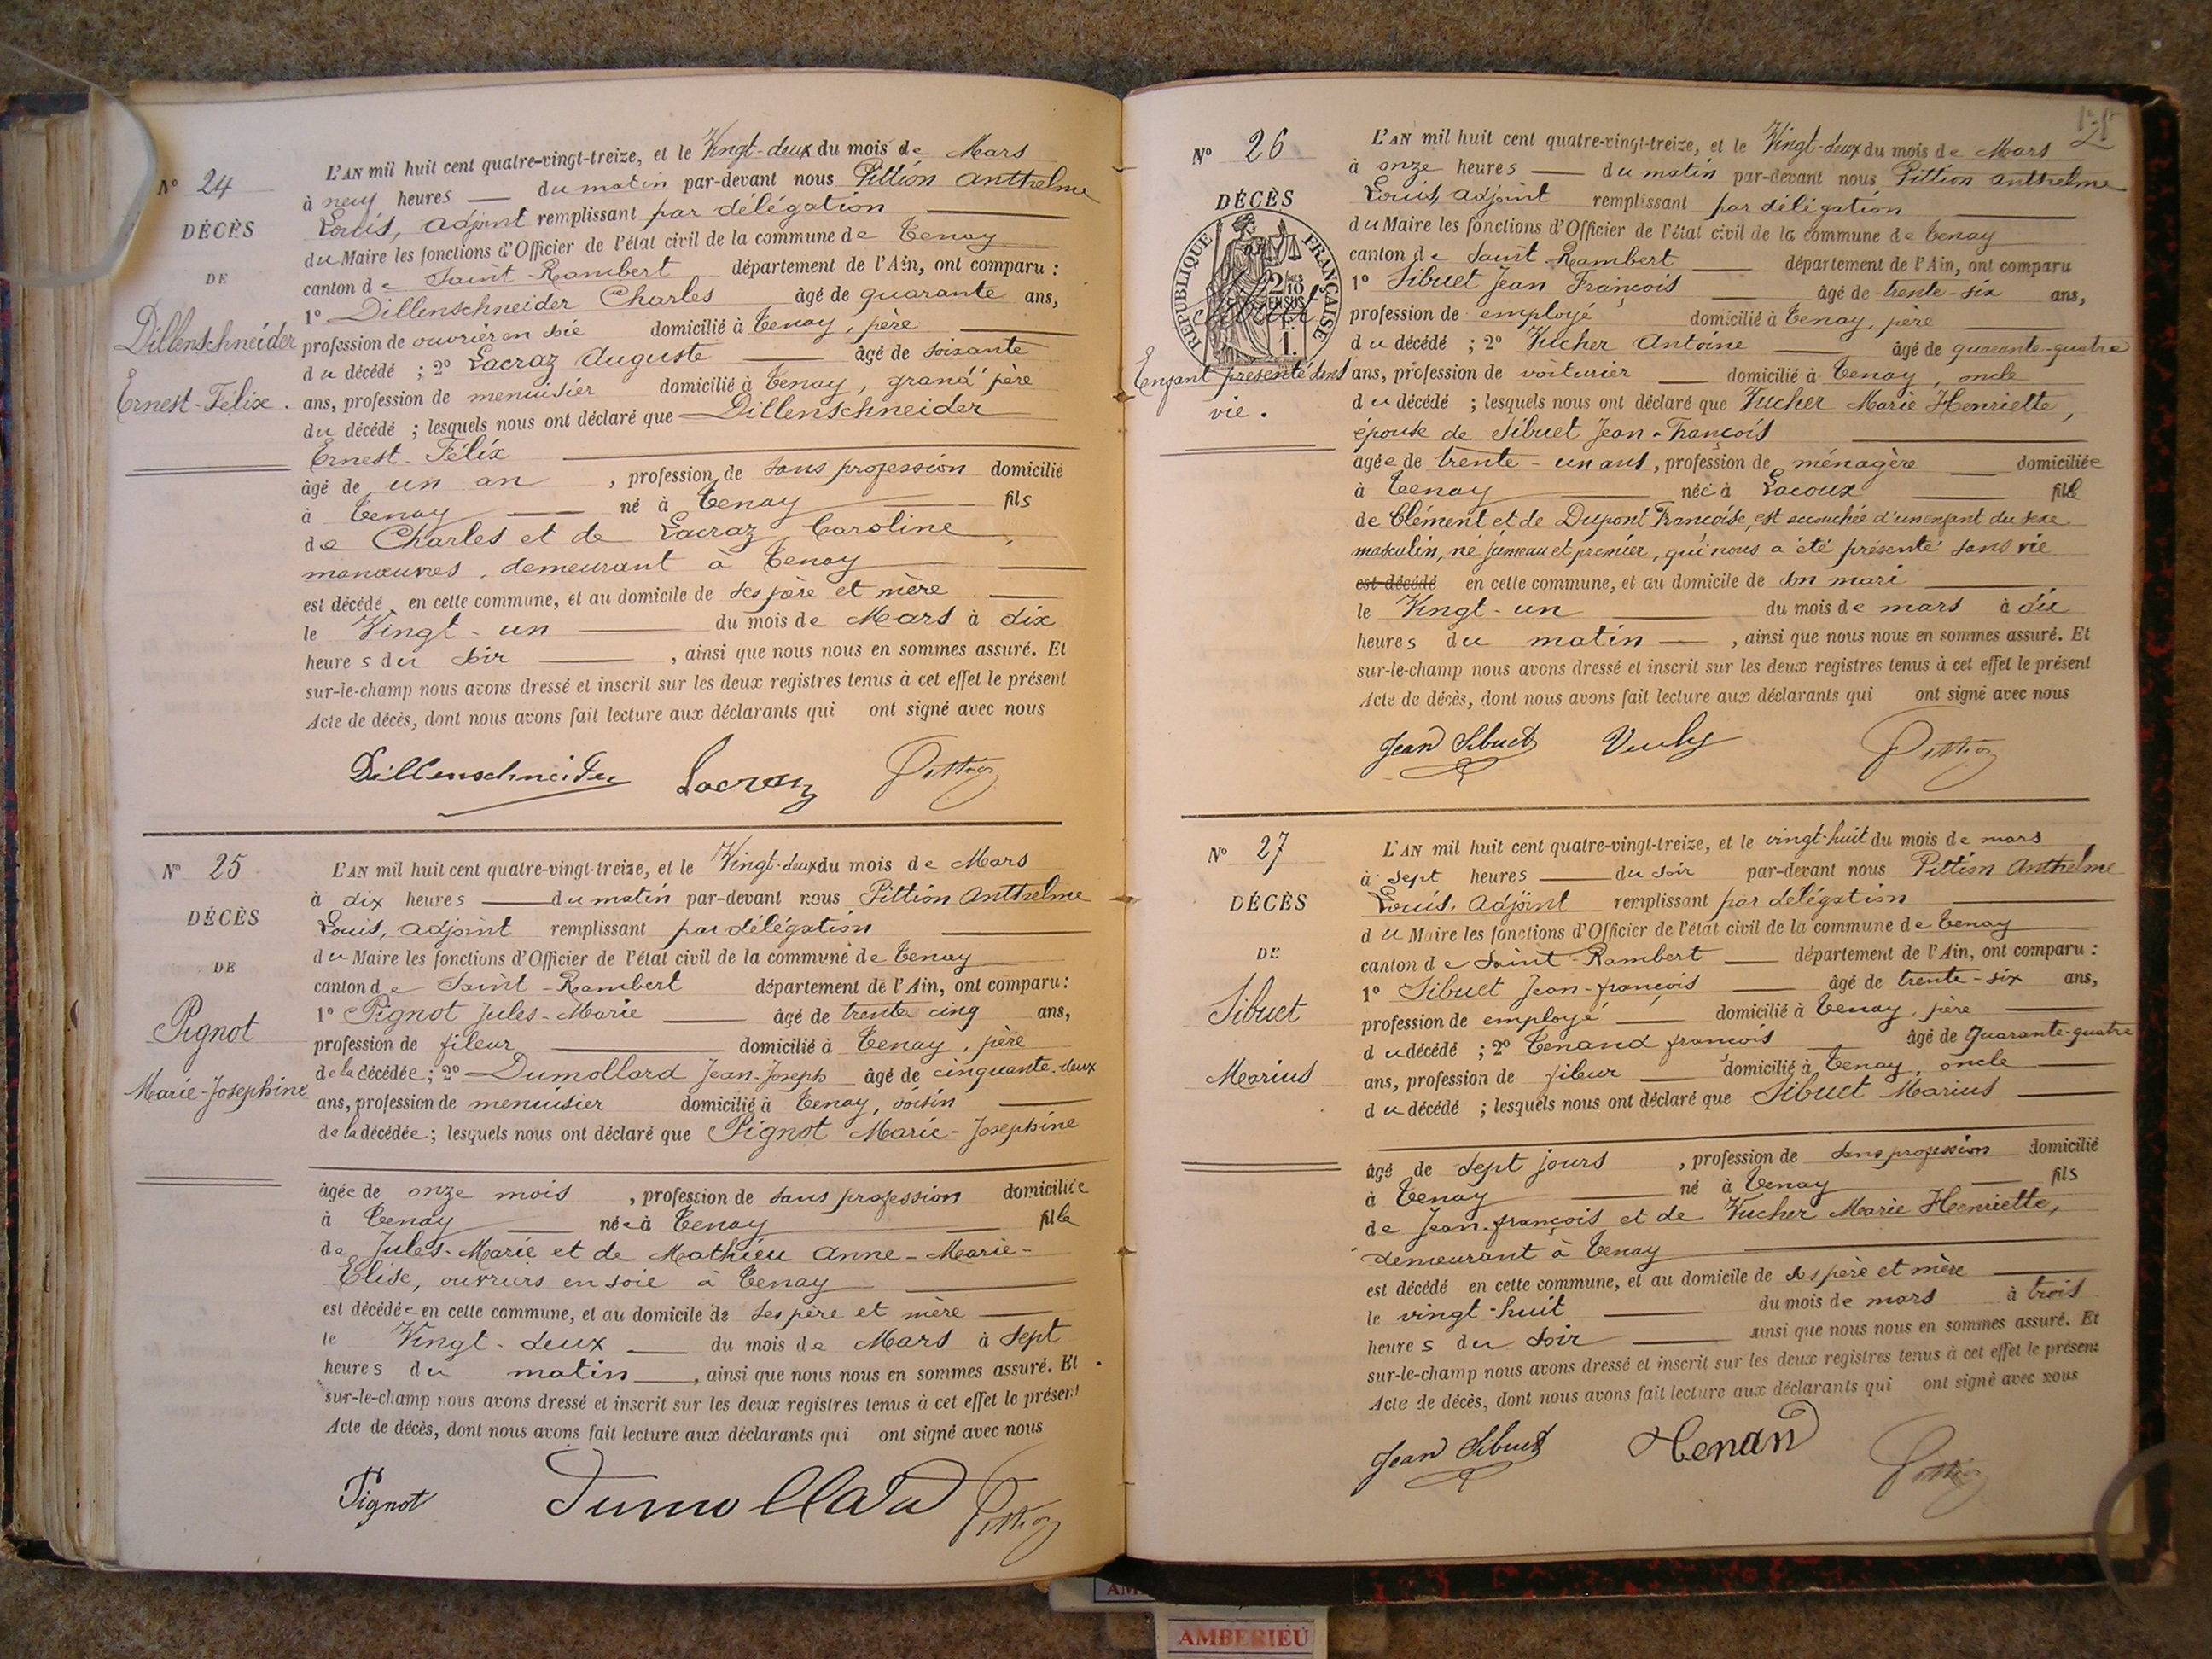 N° 24
DÉCÈS
DE
Dillenschneider
Ernest-Félix.
L'AN mil huit cent quatre-vingt-treize, et le Vingt-deux du mois de Mars
à neuf heures — du matin par-devant nous Pittion Anthelme
Louis, adjoint remplissant par délégation
du Maire les fonctions d'Officier de l'état civil de la commune de Tenay
canton de Saint-Rambert département de l'Ain, ont comparu :
1° Dillenschneider Charles âgé de quarante ans,
profession de ouvrier en soie domicilié à Tenay, père
du décédé ; 2° Lacraz Auguste âgé de soixante
ans, profession de menuisier domicilié à Tenay, grand'père
du décédé ; lesquels nous ont déclaré que Dillenschneider
Ernest-Félix
âgé de un an , profession de sans profession domicilié
à Tenay né à Tenay fils
de Charles et de Lacraz Caroline,
manœuvres, demeurant à Tenay
est décédé en cette commune, et au domicile de ses père et mère
le Vingt-un du mois de Mars à dix
heures du soir , ainsi que nous nous en sommes assuré. Et
sur-le-champ nous avons dressé et inscrit sur les deux registres tenus à cet effet le présent
Acte de décès, dont nous avons fait lecture aux déclarants qui ont signé avec nous
Dillenschneider Lacraz Pittion
N° 25
DÉCÈS
DE
Pignot
Marie-Josephine
L'AN mil huit cent quatre-vingt-treize, et le Vingt-deux du mois de Mars
à dix heures — du matin par-devant nous Pittion Anthelme
Louis, adjoint remplissant par délégation
du Maire les fonctions d'Officier de l'état civil de la commune de Tenay
canton de Saint-Rambert département de l'Ain, ont comparu :
1° Pignot Jules-Marie âgé de trente cinq ans,
profession de fileur domicilié à Tenay, père
de la décédée ; 2° Dumollard Jean-Joseph âgé de cinquante-deux
ans, profession de menuisier domicilié à Tenay, voisin
de la décédée ; lesquels nous ont déclaré que Pignot Marie-Josephine
âgée de onze mois , profession de sans profession domiciliée
à Tenay née à Tenay fille
de Jules-Marie et de Mathieu Anne-Marie-
Elise, ouvriers en soie à Tenay
est décédée en cette commune, et au domicile de ses père et mère
le Vingt-deux du mois de Mars à sept
heures du matin , ainsi que nous nous en sommes assuré. Et
sur-le-champ nous avons dressé et inscrit sur les deux registres tenus à cet effet le présent
Acte de décès, dont nous avons fait lecture aux déclarants qui ont signé avec nous
Pignot Dumollard Pittion
N° 26
DÉCÈS
RÉPUBLIQUE FRANÇAISE
Enfant présenté sans
vie.
L'AN mil huit cent quatre-vingt-treize, et le Vingt-deux du mois de Mars
à onze heures — du matin par-devant nous Pittion Anthelme
Louis, adjoint remplissant par délégation
du Maire les fonctions d'Officier de l'état civil de la commune de Tenay
canton de Saint-Rambert département de l'Ain, ont comparu
1° Sibuet Jean François âgé de trente-six ans,
profession de employé domicilié à Tenay, père
du décédé ; 2° Vucher Antoine âgé de quarante-quatre
ans, profession de voiturier domicilié à Tenay, oncle
du décédé ; lesquels nous ont déclaré que Vucher Marie Henriette,
épouse de Sibuet Jean-François
âgée de trente-un ans, profession de ménagère domiciliée
à Tenay née à Lacoux fille
de Clément et de Dupont Françoise, est accouchée d'un enfant du sexe
masculin, né jumeau et premier, qui nous a été présenté sans vie
est décédé en cette commune, et au domicile de son mari
le Vingt-un du mois de mars à six
heures du matin , ainsi que nous nous en sommes assuré. Et
sur-le-champ nous avons dressé et inscrit sur les deux registres tenus à cet effet le présent
Acte de décès, dont nous avons fait lecture aux déclarants qui ont signé avec nous
Jean Sibuet Pittion
N° 27
DÉCÈS
DE
Sibuet
Marius
L'AN mil huit cent quatre-vingt-treize, et le vingt-huit du mois de mars
à sept heures — du soir par-devant nous Pittion Anthelme
Louis, adjoint remplissant par délégation
du Maire les fonctions d'Officier de l'état civil de la commune de Tenay
canton de Saint-Rambert département de l'Ain, ont comparu :
1° Sibuet Jean-françois âgé de trente-six ans,
profession de employé domicilié à Tenay, père
du décédé ; 2° Tenand françois âgé de quarante-quatre
ans, profession de fileur domicilié à Tenay, oncle
du décédé ; lesquels nous ont déclaré que Sibuet Marius
âgé de sept jours , profession de sans profession domicilié
à Tenay né à Tenay fils
de Jean-françois et de Vucher Marie Henriette,
demeurant à Tenay
est décédé en cette commune, et au domicile de ses père et mère
le vingt-huit du mois de mars à trois
heures du soir ainsi que nous nous en sommes assuré. Et
sur-le-champ nous avons dressé et inscrit sur les deux registres tenus à cet effet le présent
Acte de décès, dont nous avons fait lecture aux déclarants qui ont signé avec nous
Jean Sibuet Tenand Pittion
AMBERIEU